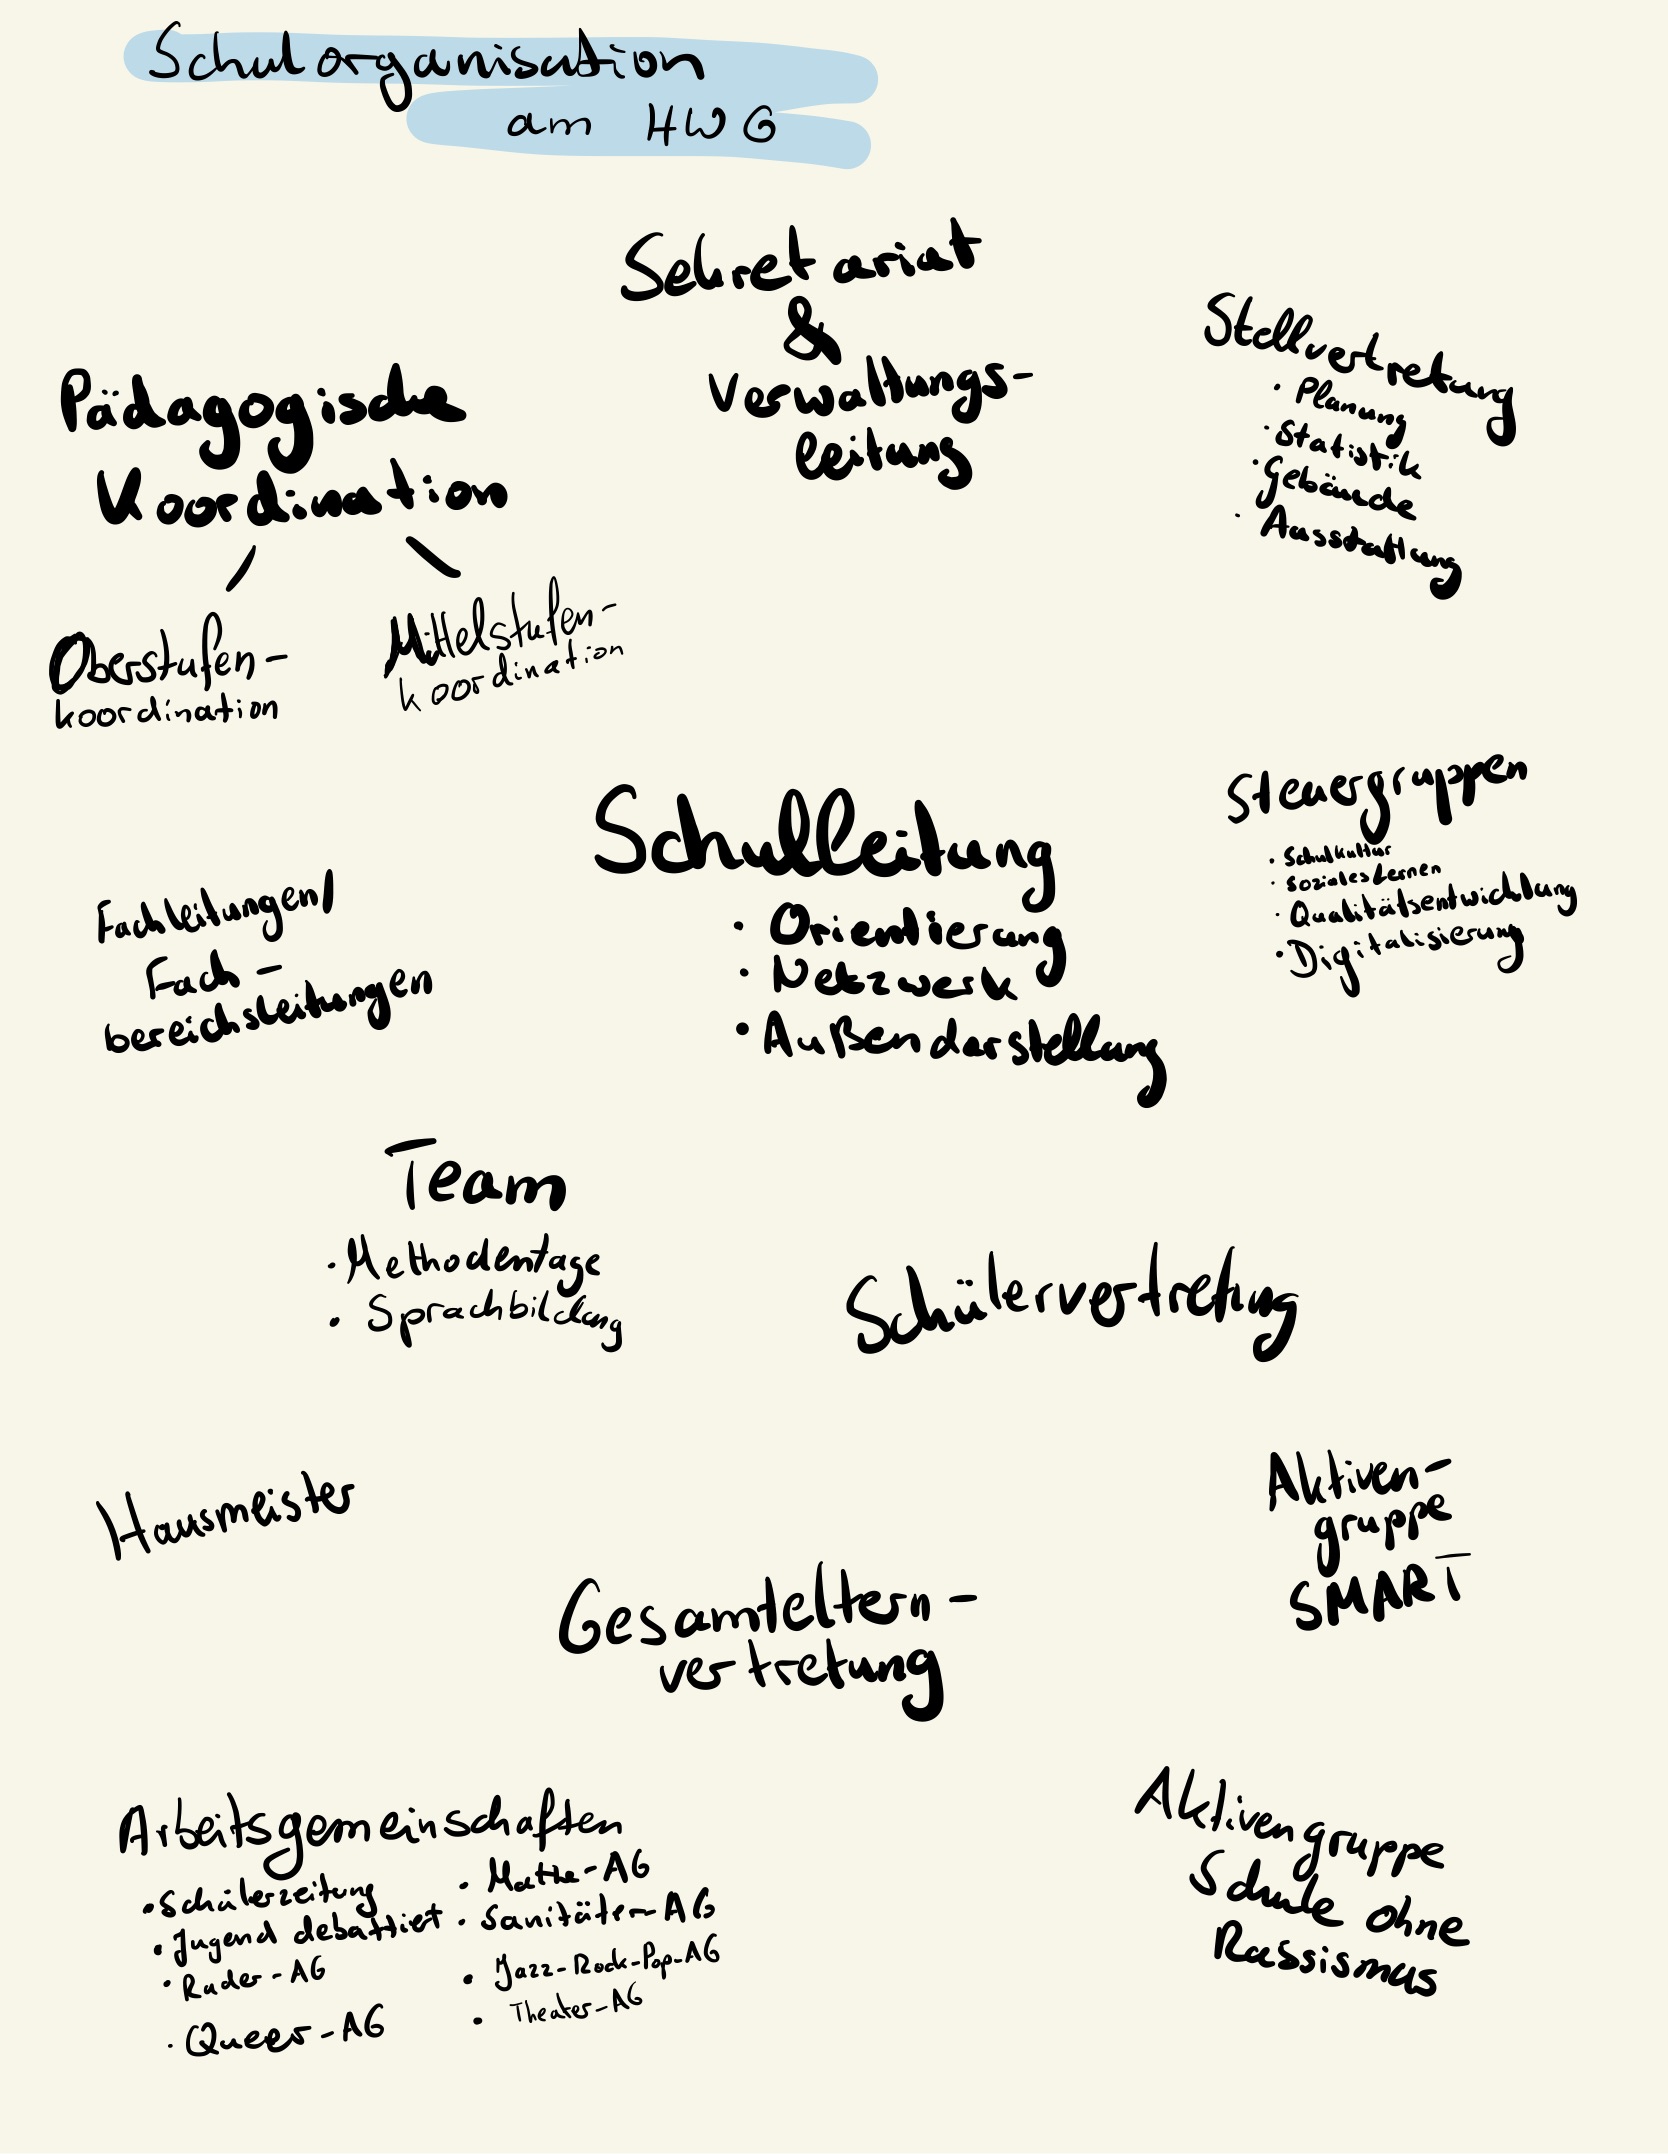 Schulorganisation
am HWG
Sekretariat
&
Verwaltungs-
leitung
Stellvertretung
• Planung
• Statistik
• Gebäude
• Ausstattung
Pädagogische
Koordination
Oberstufen-
koordination
Mittelstufen-
koordination
Schulleitung
• Orientierung
• Netzwerk
• Außendarstellung
Steuergruppen
• Schulkultur
• Soziales Lernen
• Qualitätsentwicklung
• Digitalisierung
Fachleitungen/
Fach-
bereichsleitungen
Team
• Methodentage
• Sprachbildung
Schülervertretung
Hausmeister
Aktiven-
gruppe
SMART
Gesamteltern-
vertretung
Arbeitsgemeinschaften
• Schülerzeitung
• Jugend debattiert
• Ruder-AG
• Queer-AG
• Mathe-AG
• Sanitäter-AG
• Jazz-Rock-Pop-AG
• Theater-AG
Aktivengruppe
Schule ohne
Rassismus